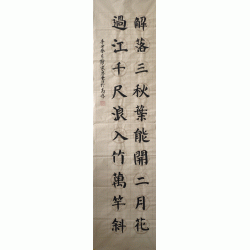 解落三秋葉能開二月花
過江千尺浪入竹萬竿斜